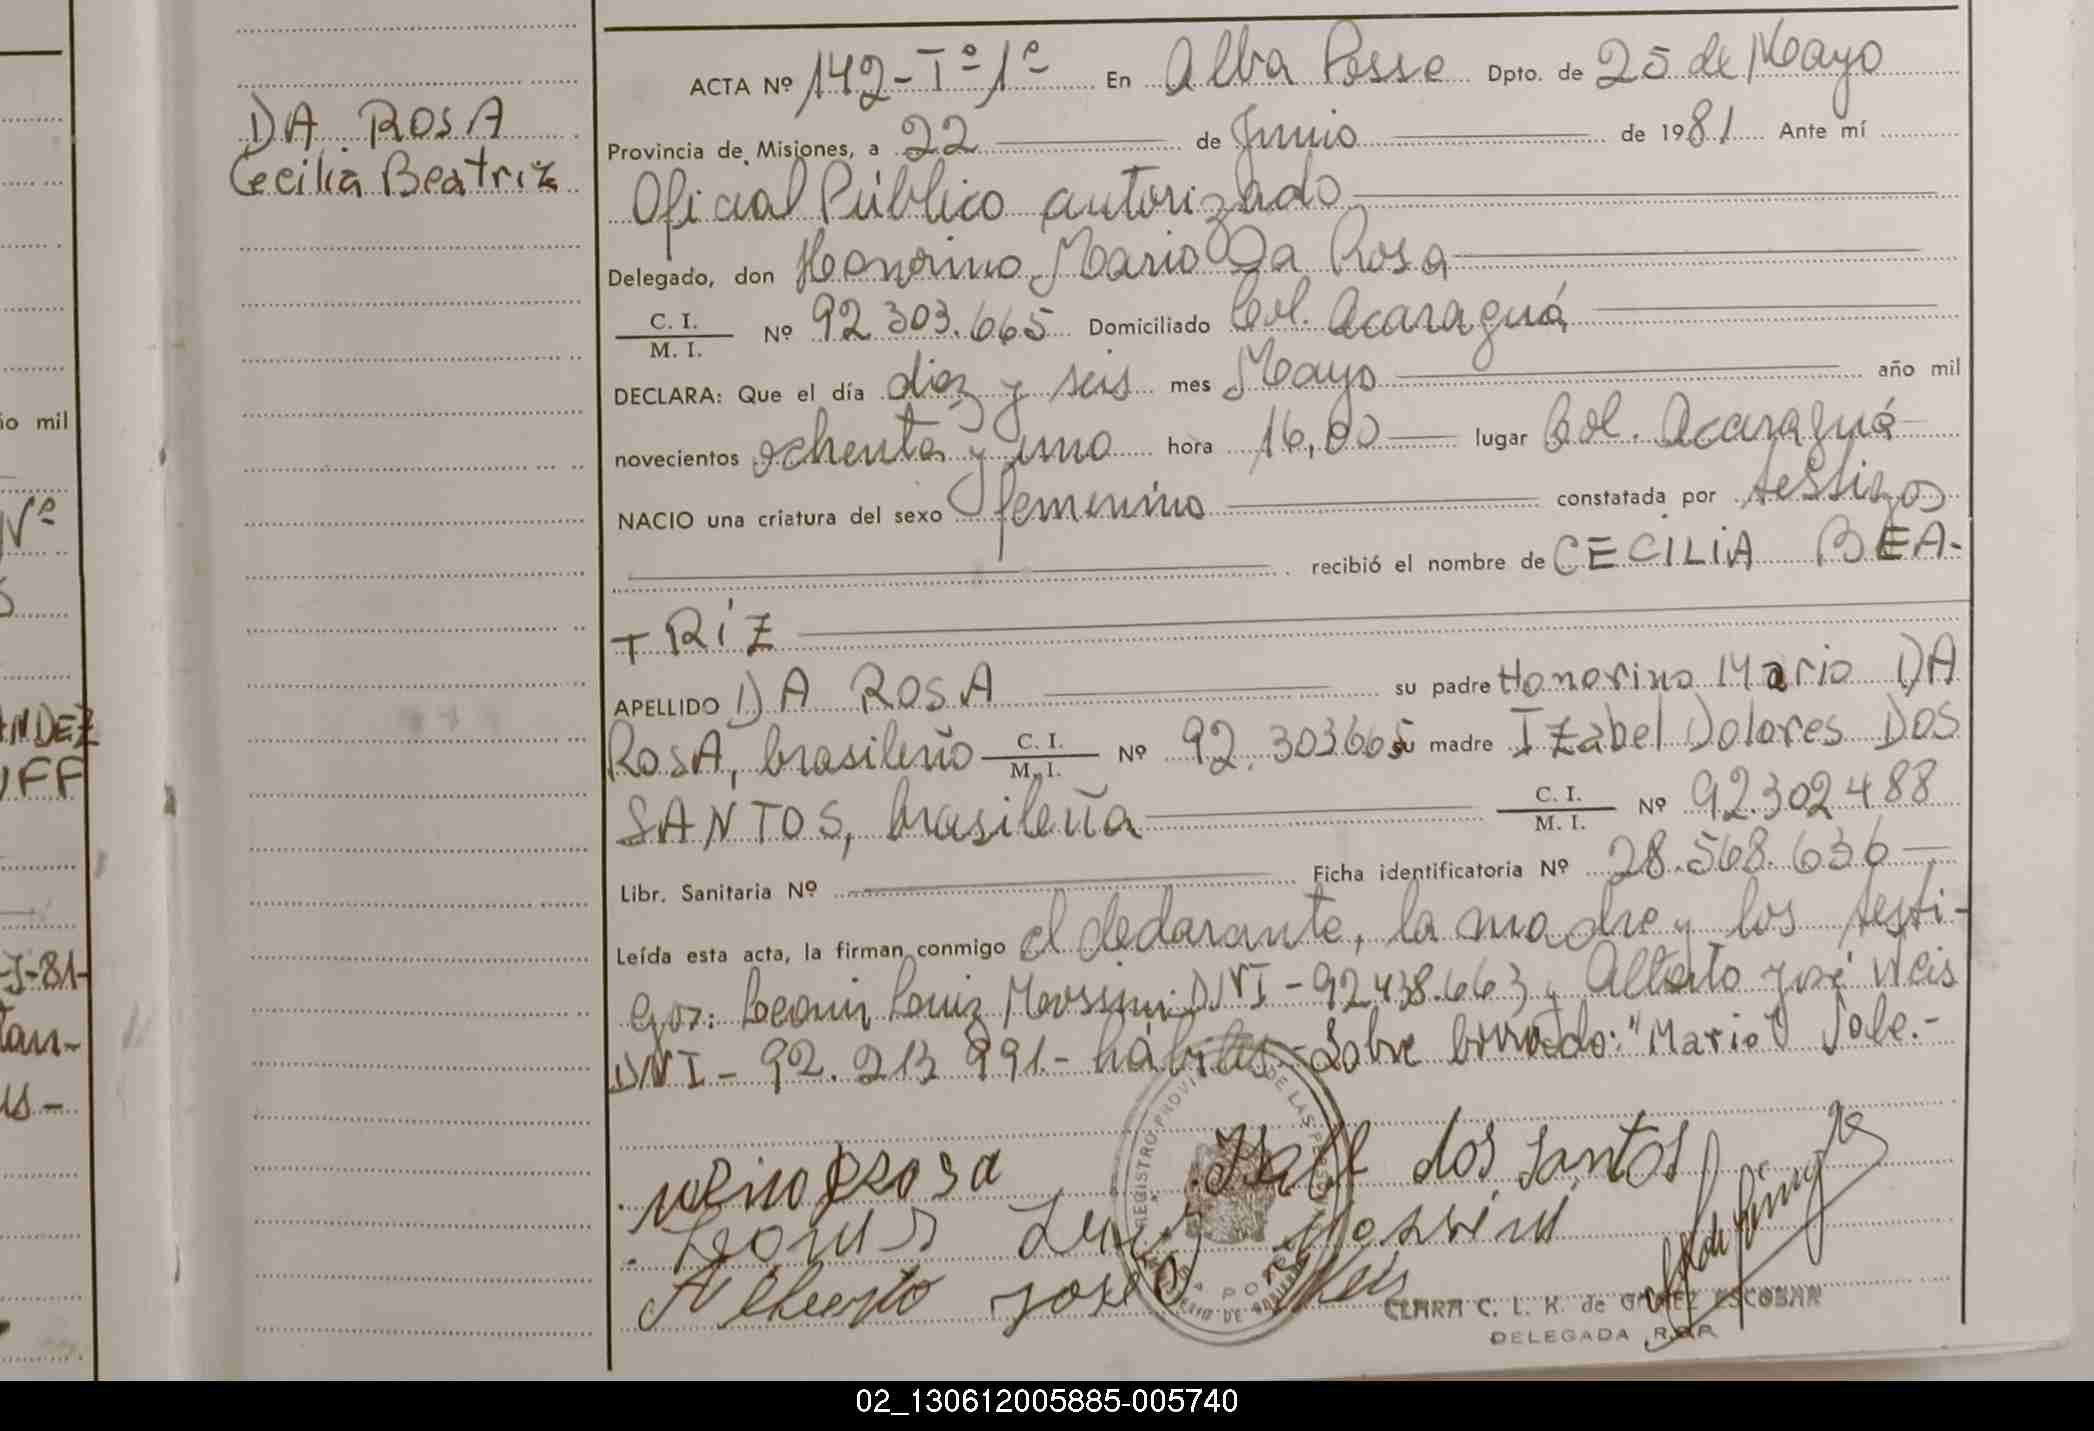 DA ROSA
Cecilia Beatriz
ACTA Nº 142-Tº1º En Alba Posse Dpto. de 25 de Mayo
Provincia de Misiones, a 22 de Junio de 1981 Ante mí
Oficial Público autorizado
Delegado, don Honorino Mario Da Rosa
C. I.
M. I. Nº 92 303.665 Domiciliado Col. Acaraguá
DECLARA: Que el día diez y seis mes Mayo año mil
novecientos ochenta y uno hora 16,00 lugar Col. Acaraguá
NACIO una criatura del sexo femenino constatada por testigos
recibió el nombre de CECILIA BEA-
TRIZ
APELLIDO DA ROSA su padre Honorino Mario DA
ROSA, brasileño C. I. M. I. Nº 92.303665 su madre Izabel Dolores DOS
SANTOS, brasileña C. I. M. I. Nº 92.302488
Libr. Sanitaria Nº Ficha identificatoria Nº 28.568.636
Leída esta acta, la firman conmigo el declarante, la madre y los testi-
gos: Luiz DNI-92.438.663 y Alberto José Weis
DNI-92.213 991.- hábiles-Sobre borrado: "Mario" Vale.-
Rosa
dos santos
Alberto José Weis
CLARA C. L. K. de GOMEZ ESCOBAR
DELEGADA R.P.P.
io mil
Nº
NDEZ
FF
-J-81-
02_130612005885-005740